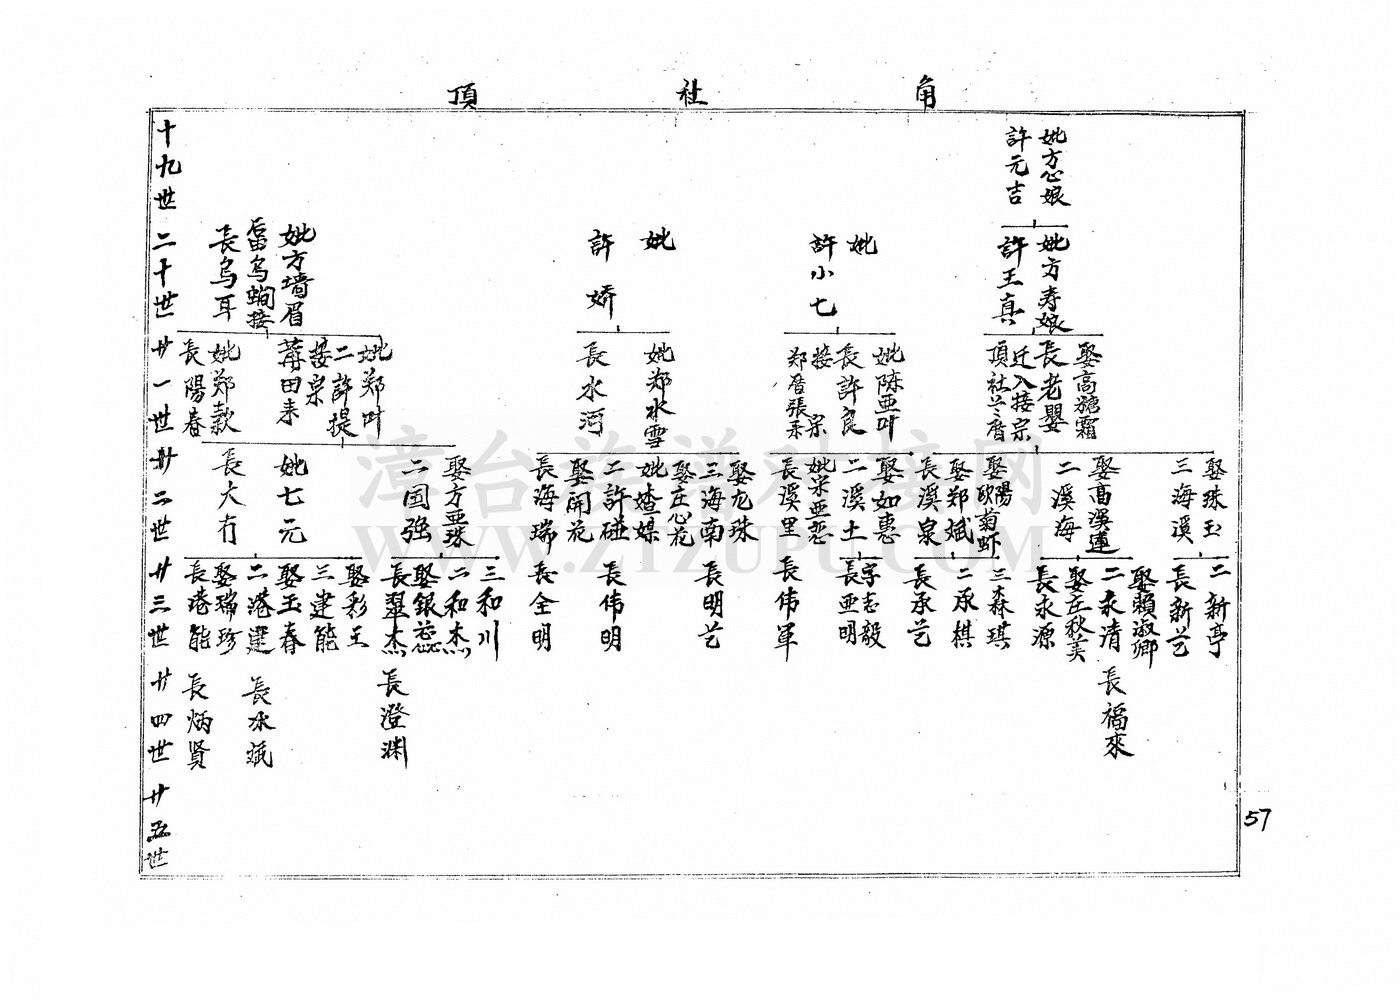 頂社角
十九世
二十世
廿一世
廿二世
廿三世
廿四世
廿五世
妣方心娘
許元吉
妣方寿娘
許王真
妣
許小七
妣
許娇
妣方墙眉
長烏耳
娶高糖霜
長老嬰
迁入接宗
頂社
妣陈亜叶
長許良
接宗
妣郑水雪
長水河
妣郑叶
二許提
接宗
妣郑款
長陽春
娶珠玉
三海溪
娶高溪蓮
二溪海
娶欧陽菊虾
娶郑娬
長溪泉
娶如惠
二溪土
妣宋亜恋
長溪里
娶九珠
三海南
娶庄心花
妣媎媒
二許碰
娶開花
長海瑞
娶方亜珠
二国强
妣七元
長大有
二新亭
長新艺
娶賴淑卿
二永清
娶庄秋美
長永源
三森琪
二承棋
長承艺
字志毅
長亜明
長伟軍
長明艺
長伟明
長全明
三和川
二和杰
娶銀蕊
長翠杰
娶彩玉
三建能
娶玉春
二港選
娶瑞珍
長港能
長福來
長澄渊
長水斌
長炳賢
57
漳台族谱对接网
WWW.ZTZUPU.COM